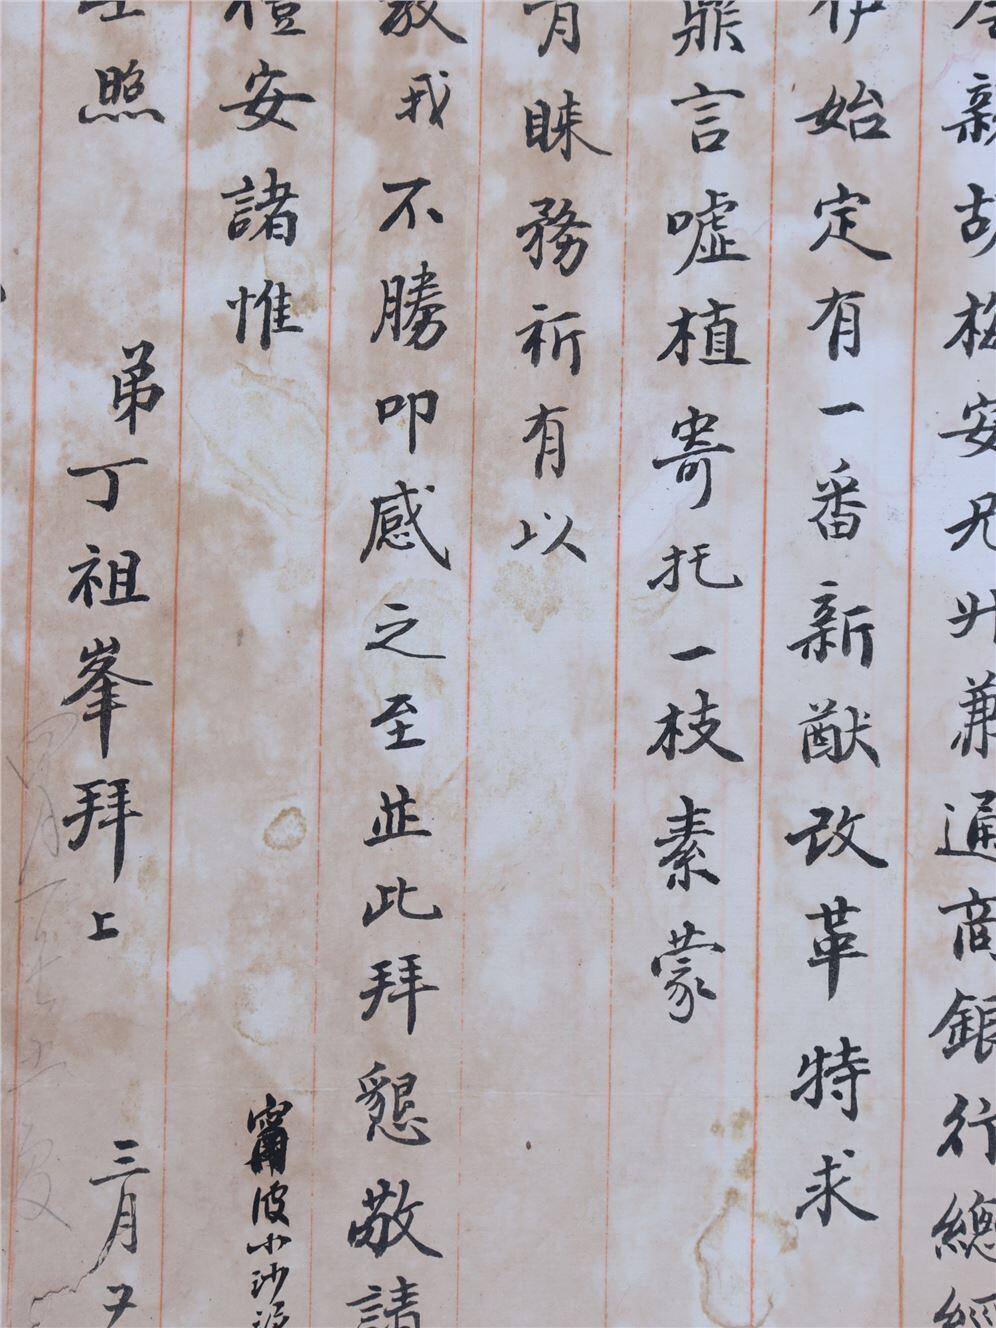 親胡松安兄升兼通商銀行總經
伊始定有一番新猷改革特求
鼎言噓植寄托一枝素蒙
青睞務祈有以
教我不勝叩感之至耑此拜懇敬請
禮安諸惟
甯波小沙
照
弟丁祖峯拜上
三月